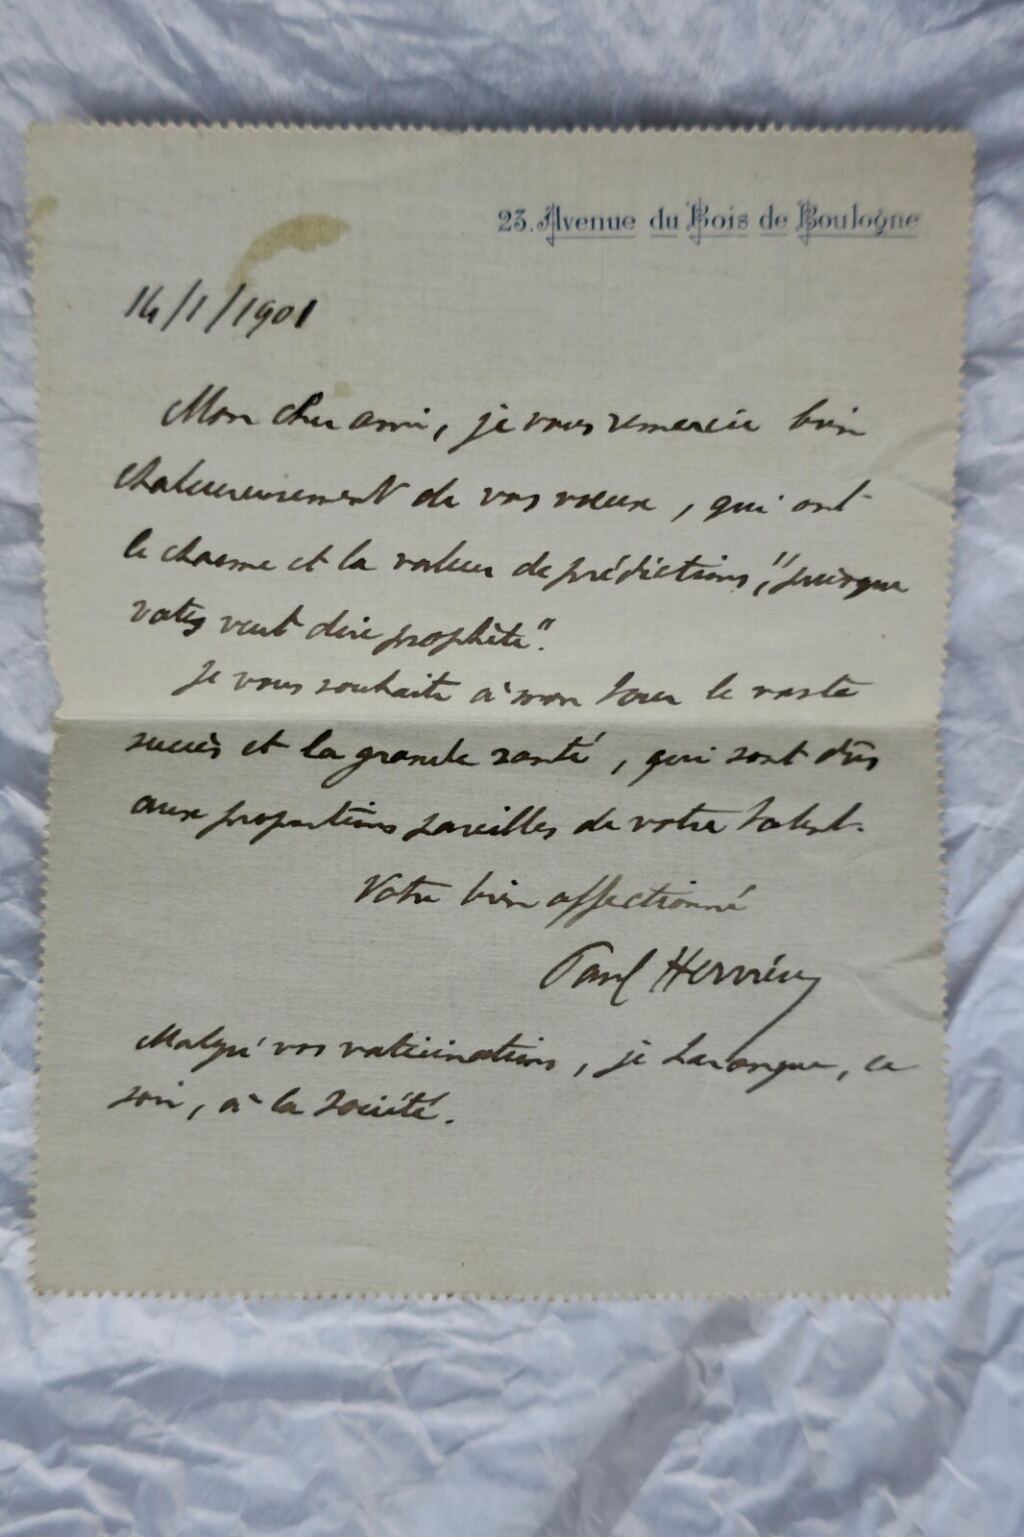 23. Avenue du Bois de Boulogne
14/1/1901
Mon cher ami, je vous remercie bien
chaleureusement de vos vœux, qui ont
le charme et la valeur de prédictions, "puisque
vates veut dire prophète".
Je vous souhaite à mon tour le vaste
succès et la grande santé, qui sont dûs
aux proportions pareilles de votre talent.
Votre bien affectionné
Paul Hervieu
Malgré vos vaticinations, je harangue, ce
soir, à la société.